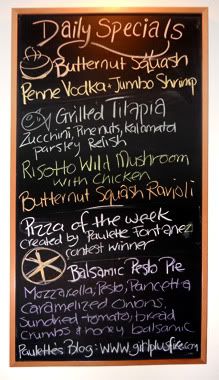 Daily Specials
Butternut Squash
Penne Vodka + Jumbo Shrimp
Grilled Tilapia
Zucchini, Pinenuts, Kalamata
Parsley Relish
Risotto Wild Mushroom
with Chicken
Butternut Squash Ravioli
Pizza of the week
created by Paulette Fontanez
contest winner
Balsamic Pesto Pie
Mozzarella, Pesto, Pancetta &
Caramelized Onions,
Sundried tomato, bread
crumbs & honey balsamic
Paulette's Blog: www.girlplusfire.com